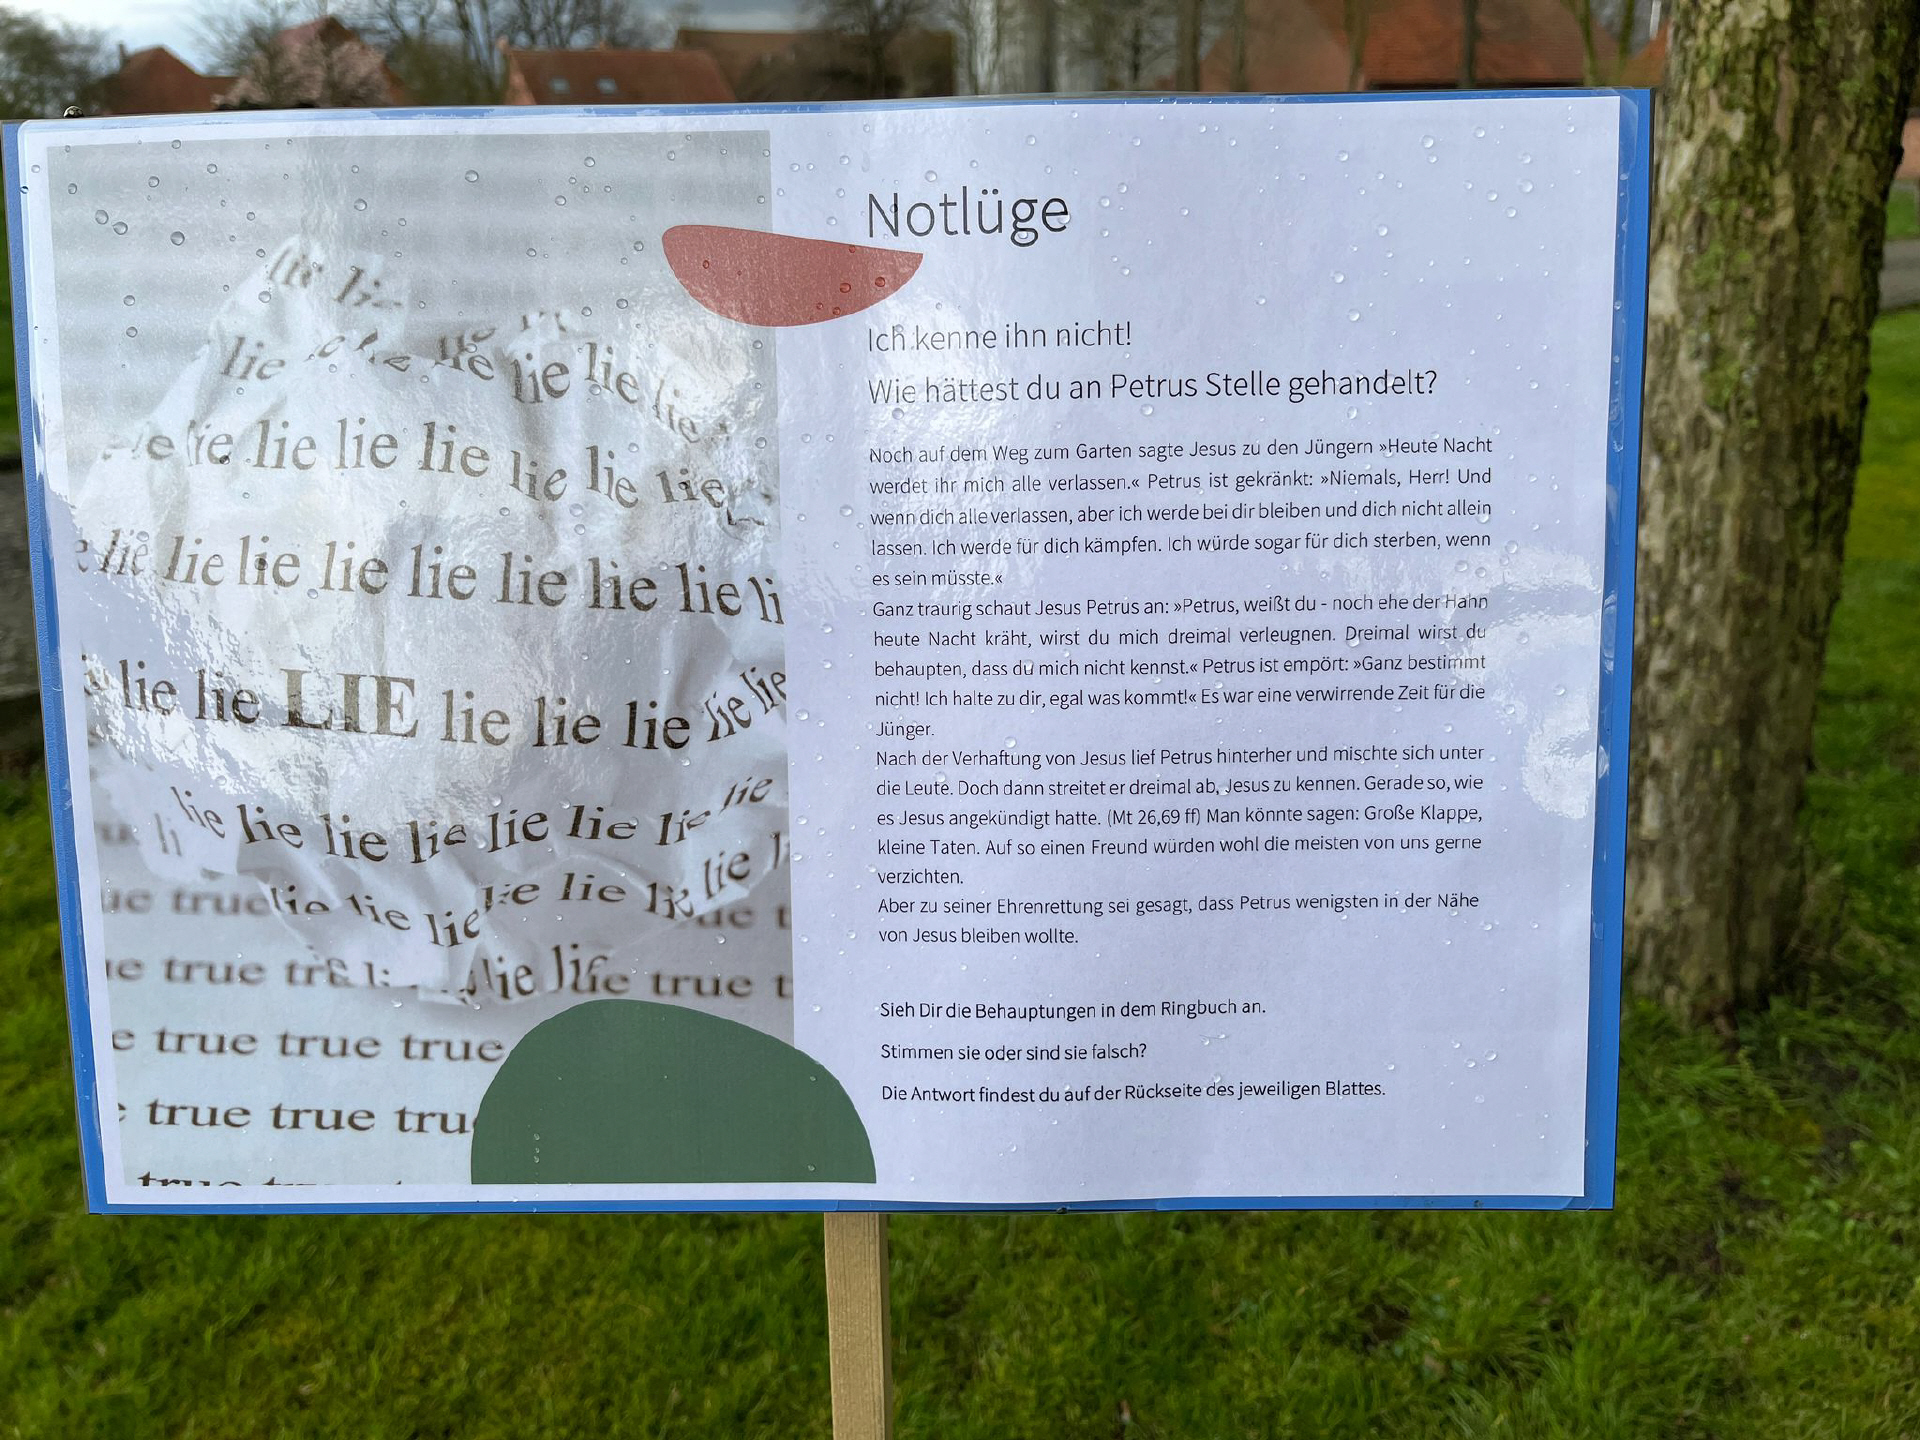 Notlüge
Ich kenne ihn nicht!
Wie hättest du an Petrus Stelle gehandelt?
Noch auf dem Weg zum Garten sagte Jesus zu den Jüngern »Heute Nacht
werdet ihr mich alle verlassen.« Petrus ist gekränkt: »Niemals, Herr! Und
wenn dich alle verlassen, aber ich werde bei dir bleiben und dich nicht allein
lassen. Ich werde für dich kämpfen. Ich würde sogar für dich sterben, wenn
es sein müsste.«
Ganz traurig schaut Jesus Petrus an: »Petrus, weißt du - noch ehe der Hahn
heute Nacht kräht, wirst du mich dreimal verleugnen. Dreimal wirst du
behaupten, dass du mich nicht kennst.« Petrus ist empört: »Ganz bestimmt
nicht! Ich halte zu dir, egal was kommt!« Es war eine verwirrende Zeit für die
Jünger.
Nach der Verhaftung von Jesus lief Petrus hinterher und mischte sich unter
die Leute. Doch dann streitet er dreimal ab, Jesus zu kennen. Gerade so, wie
es Jesus angekündigt hatte. (Mt 26,69 ff) Man könnte sagen: Große Klappe,
kleine Taten. Auf so einen Freund würden wohl die meisten von uns gerne
verzichten.
Aber zu seiner Ehrenrettung sei gesagt, dass Petrus wenigsten in der Nähe
von Jesus bleiben wollte.
Sieh Dir die Behauptungen in dem Ringbuch an.
Stimmen sie oder sind sie falsch?
Die Antwort findest du auf der Rückseite des jeweiligen Blattes.
lie lie lie
lie lie lie lie lie lie lie
lie lie lie lie lie lie lie lie
lie lie LIE lie lie lie lie lie
lie lie lie lie lie lie
true lie lie lie lie lie lie lie
true lie true
true true true
true true